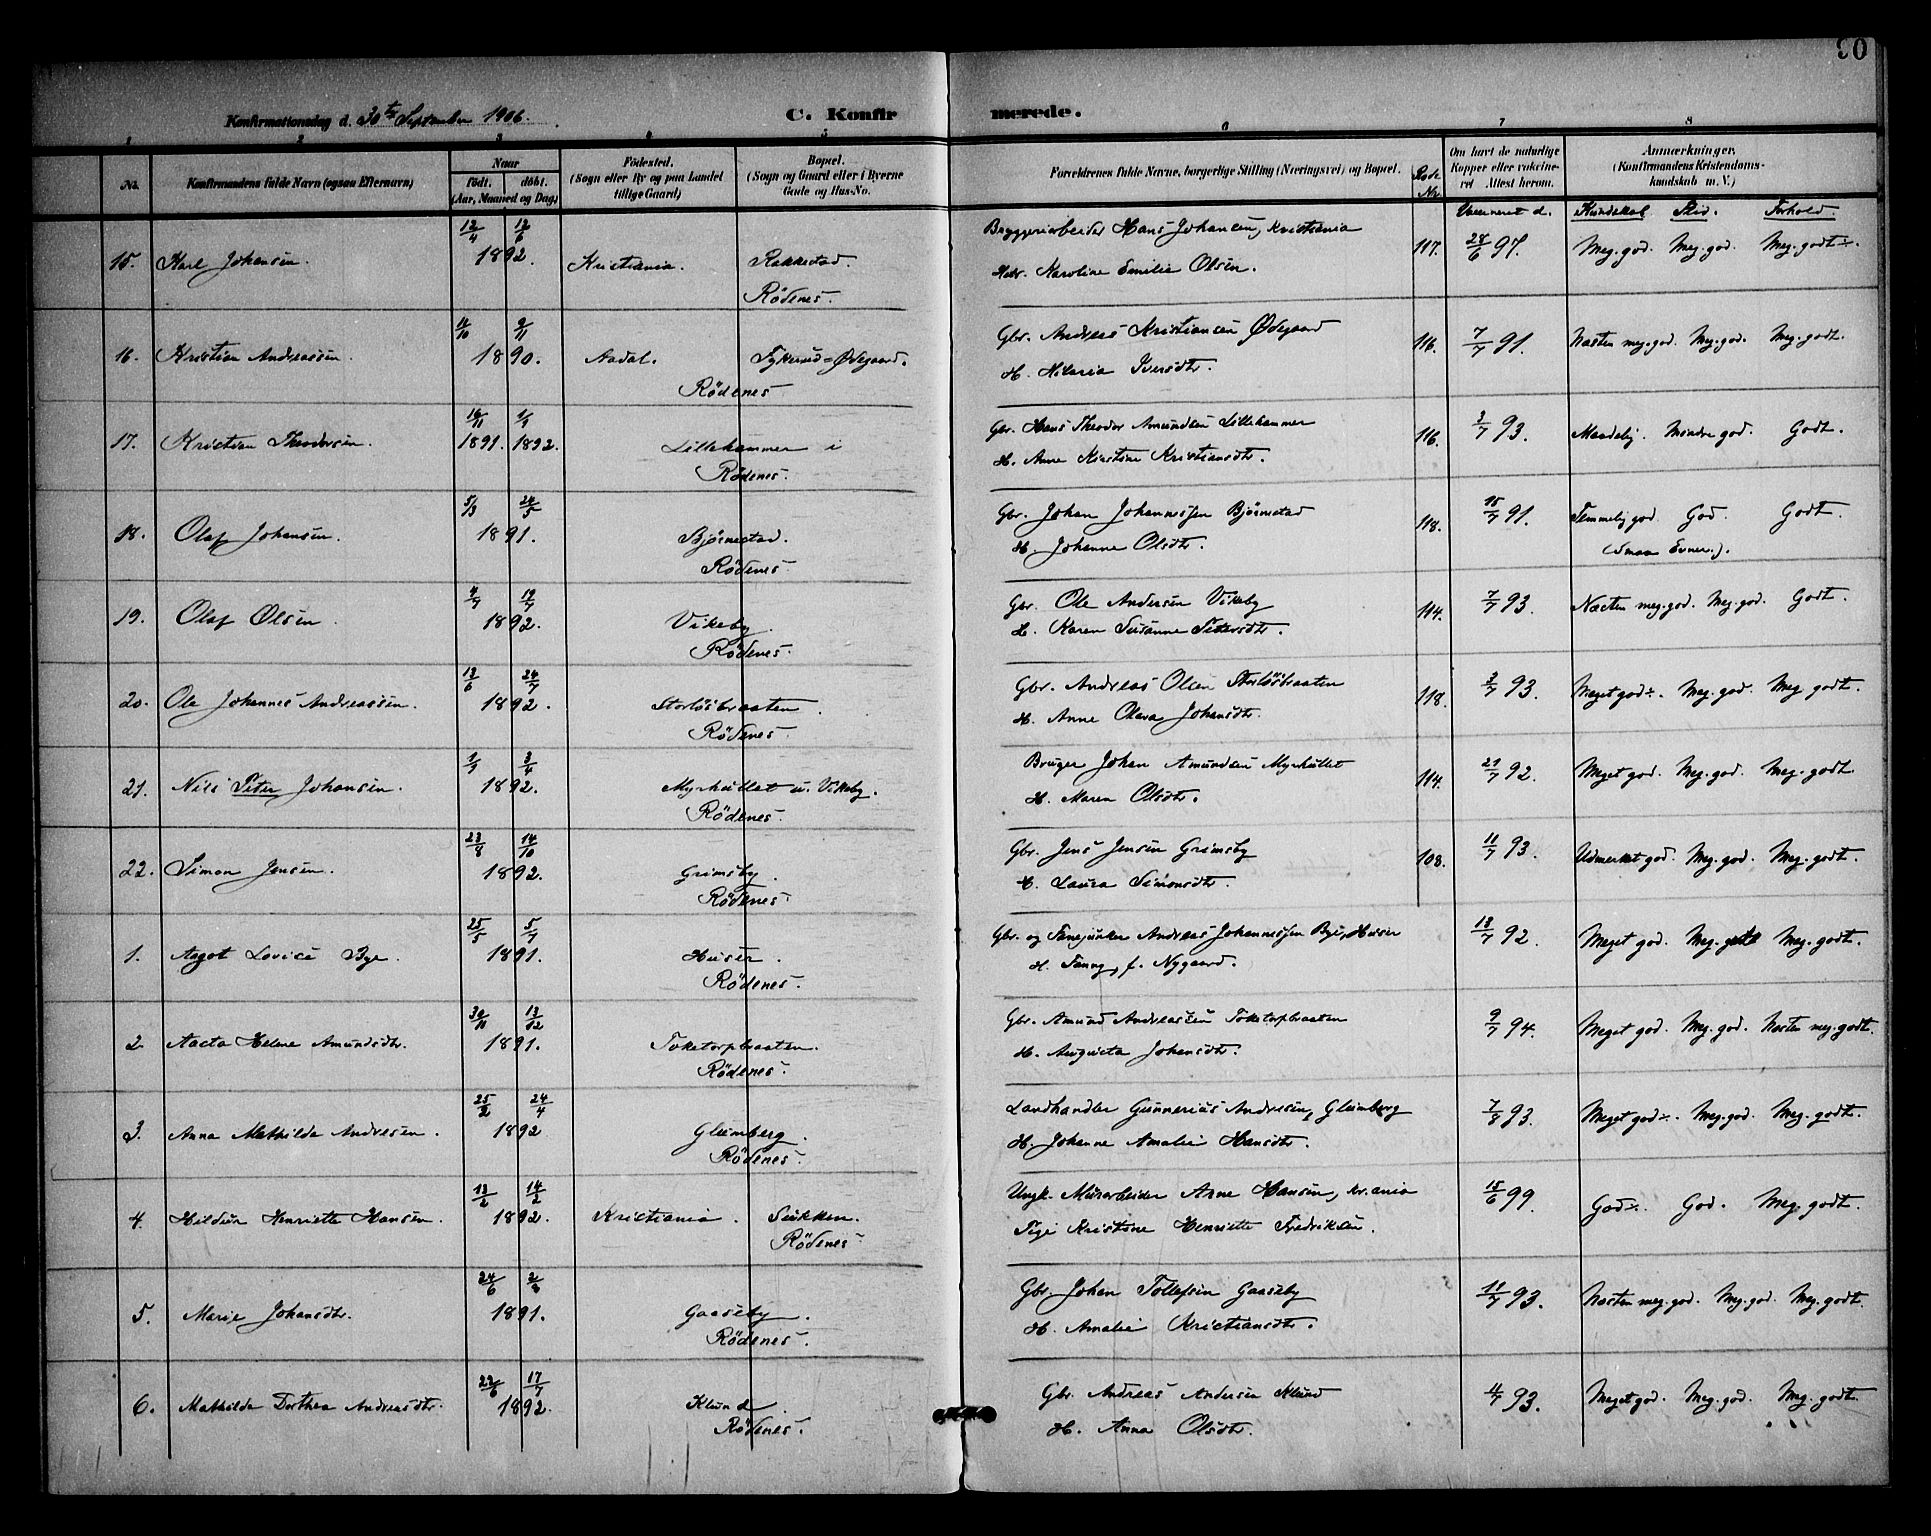 30
Konfirmationsdag d. 30te September 1906.
C. Konfirmerede.
1 2 3 4 5 6 7 8
No. Konfirmandens fulde Navn (ogsaa Efternavn) Naar født. døbt. (Aar, Maaned og Dag) Fødested. (Sogn eller By og paa Landet tillige Gaard) Bopæl. (Sogn og Gaard eller i Byerne Gade og Hus-No. Forældrenes fulde Navne, borgerlige Stilling (Næringsvei) og Bopæl. Rode Nr. Om havt de naturlige Kopper eller vaccineret. Attest herom. Anmærkninger. (Konfirmandens Kristendomskundskab m. V.)
Vaccineret d. Kundskab Flid. Forhold.
15. Karl Johansen. 12/4 12/6 1892. Kristiania. Rakkestad. Rödenes. Bryggeriarbeider Hans Johansen, Kristiania 117. 28/6 97. Meg. god. Meg. god. Meg. godt÷.
Hstr. Karoline Emilie Olsen.
16. Kristian Andreassen. 11/10 9/11 1890. Aadal. Tykerud=Ødegaard. Rödenes. Gbr. Andreas Kristiansen Ødegaard 116. 7/7 91. Næsten meg. god. Meg. god. Meg. godt.
H. Hilaria Iversdtr.
17. Kristian Theodorsen. 16/11 1891. 1/1 1892. Lillehammer i Rödenes. Gbr. Hans Theodor Amundsen Lillehammer 116. 3/7 93. Maadelig. Mindre god. Godt.
H. Anne Kirstine Kristiansdtr.
18. Olaf Johansen. 5/3 24/5 1891. Bjørnestad. Rödenes. Gbr. Johan Johannessen Bjørnestad 118. 15/7 91. Temmelig god. God. Godt.
H. Johanne Olsdtr. (Smaa Evner.).
19. Olaf Olsen. 4/7 19/7 1892. Vikeby. Rödenes. Gbr. Ole Andersen Vikeby 114. 7/7 93. Næsten meg. god. Meg. god. Godt.
H. Karen Susanne Petersdtr.
20. Ole Johannes Andreassen. 13/6 24/7 1892. Storlösbraaten. Rödenes. Gbr. Andreas Olsen Storlösbraaten 118. 3/7 93. Meget god÷. Meg. god. Meg. godt.
H. Anne Olava Johansdtr.
21. Nils Peter Johansen. 1/1 3/4 1892. Myrhullet u. Vikeby. Rödenes. Bruger Johan Amundsen Myrhullet 114. 21/7 92. Meget god. Meg. god. Meg. godt.
H. Maren Olsdtr.
22. Simon Jensen. 23/8 14/10 1892. Grimsby. Rödenes. Gbr. Jens Jensen Grimsby 108. 11/7 93. Udmerket god. Meg. god. Meg. godt.
H. Laura Simonsdtr.
1. Aagot Lovise Bye. 25/5 5/7 1891. Huser. Rödenes. Gbr. og Fanejunker Andreas Johannessen Bye, Huser 13/7 92. Meget god. Meg. god. Meg. godt.
H. Fanny, f. Nygaard.
2. Aasta Helene Amundsdtr. 30/11 13/12 1891. Toketorpbraaten. Rödenes. Gbr. Amund Andreassen Toketorpbraaten 9/7 94. Meget god. Meg. god. Næsten meg. godt.
H. Augusta Johansdtr.
3. Anna Mathilde Andresen. 25/2 24/4 1892 Glumberg. Rödenes. Landhandler Gunnerius Andresen, Glumberg 7/8 93. Meget god÷. Meg. god. Meg. godt.
H. Johanne Amalie Hansdtr.
4. Hildur Henriette Hansen. 13/2 14/2 1892. Kristiania. Sukken. Rödenes. Ungk. Murarbeider Arne Hansen, Kr.ania 15/6 99. God÷. God. Meg. godt.
Pige Kristine Henriette Fredriksen.
5. Marie Johansdtr. 24/6 2/8 1891. Gaaseby. Rödenes. Gbr. Johan Tollefsen Gaaseby 11/7 93. Næsten meg. god. Meg. god. Meg. godt.
H. Amalie Kristiansdtr.
6. Mathilde Dorthea Andreasdtr. 22/6 17/7 1892. Klund. Rödenes. Gbr. Andreas Andersen Klund 4/7 93. Meget god. Meg. god. Meg. godt.
H. Anna Olsdtr.